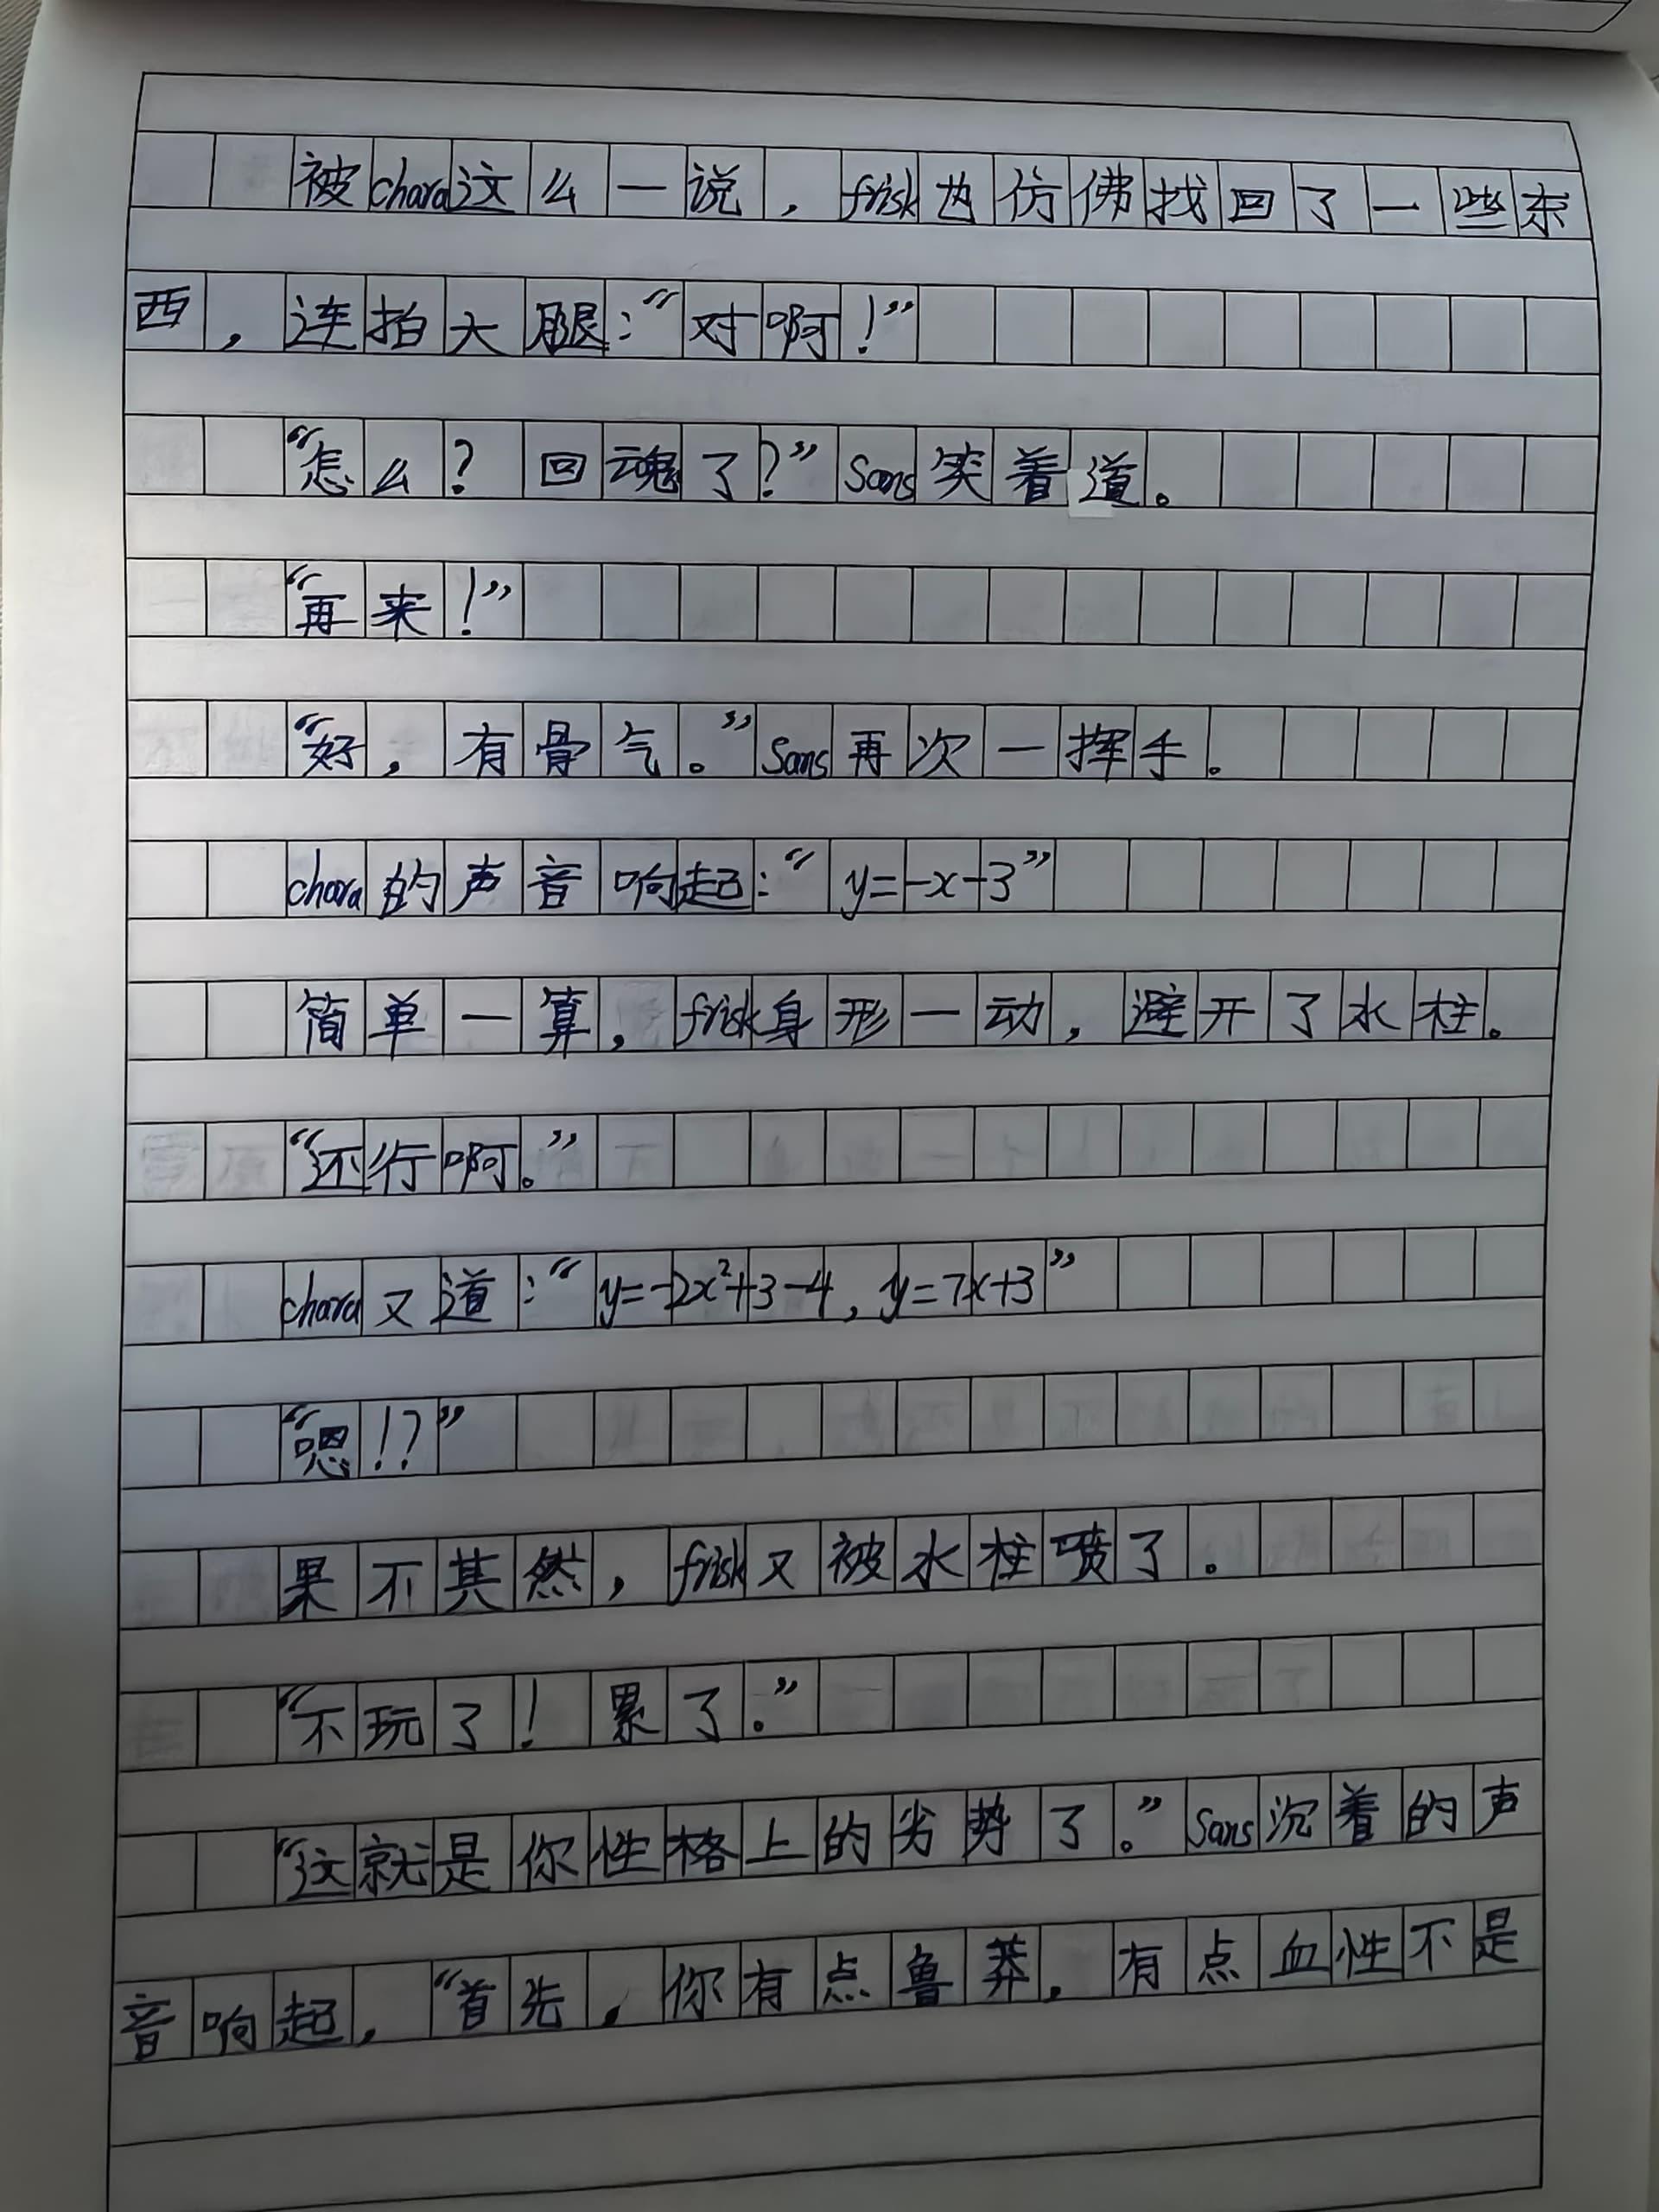 被chara这么一说，frisk也仿佛找回了一些东
西，连拍大腿：“对啊！”
“怎么？回魂了？”Sans笑着道。
“再来！”
“好，有骨气。”Sans再次一挥手。
chara的声音响起：“y=-x-3”
简单一算，frisk身形一动，避开了水柱。
“还行啊。”
chara又道：“y=-2x²+3-4，y=7x+3”
“嗯！？”
果不其然，frisk又被水柱喷了。
“不玩了！累了。”
“这就是你性格上的劣势了。”Sans沉着的声
音响起，“首先，你有点鲁莽，有点血性不是